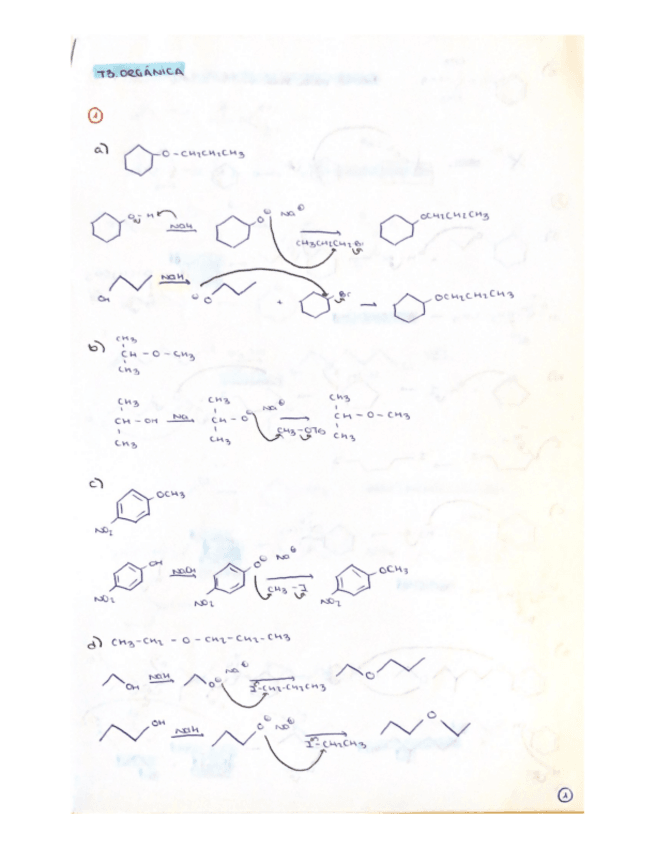 T3. ORGÁNICA
1
a)
O-CH2CH2CH3
O-H
NaH
O⊖ Na⊕
CH3CH2CH2Br
OCH2CH2CH3
OH
NaH
⊖O
+
Br
OCH2CH2CH3
b)
CH3
CH-O-CH3
CH3
CH3
CH-OH
CH3
Na
CH3
CH-O⊖ Na⊕
CH3
CH3-OTs
CH3
CH-O-CH3
CH3
c)
OCH3
NO2
OH
NO2
NaOH
O⊖ Na⊕
NO2
CH3-I
OCH3
NO2
d) CH3-CH2-O-CH2-CH2-CH3
OH
NaH
O⊖ Na⊕
I-CH2-CH2CH3
O
OH
NaH
O⊖ Na⊕
I-CH2CH3
O
1